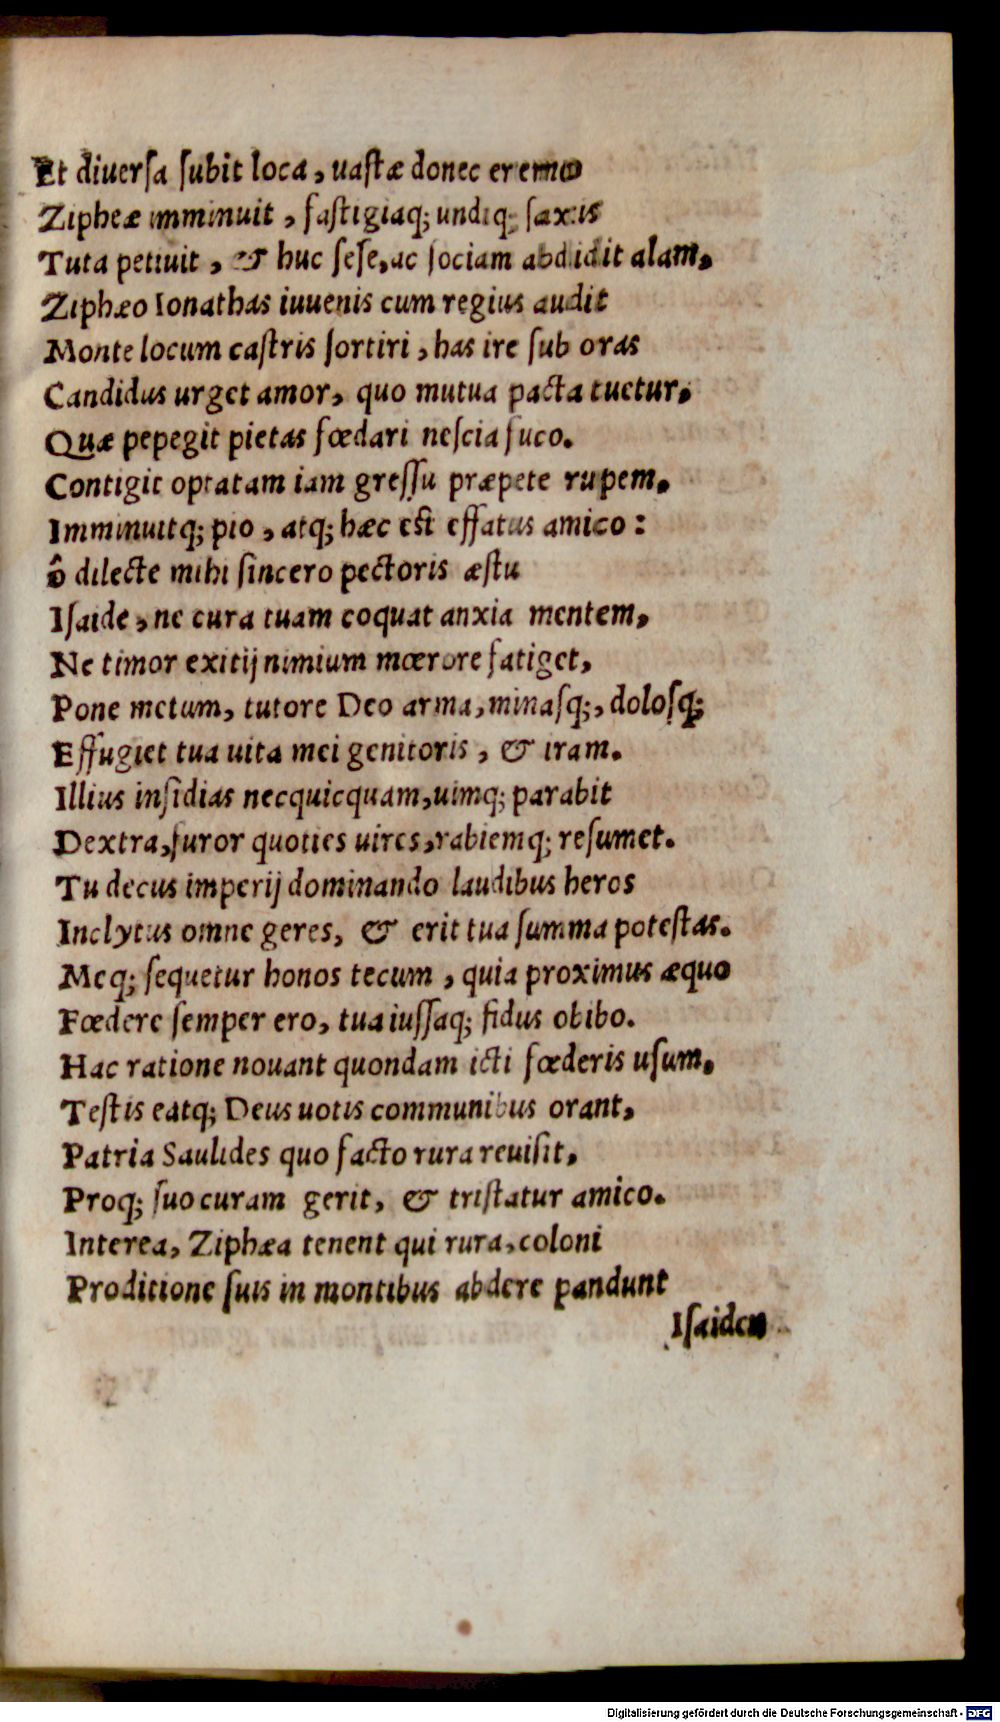 Et diuersa subit loca, uastæ donec eremo
Zipheæ imminuit, fastigiaq; undiq; saxis
Tuta petiuit, & huc sese, ac sociam abdidit alam.
Ziphæo Ionathas iuuenis cum regius audit
Monte locum castris sortiri, has ire sub oras
Candidus urget amor, quo mutua pacta tuetur,
Quæ pepegit pietas fœdari nescia fuco.
Contigit optatam iam gressu præpete rupem,
Imminuitq; pio, atq; hæc est effatus amico:
ô dilecte mihi sincero pectoris æstu
Isaide, ne cura tuam coquat anxia mentem,
Ne timor exitij nimium mœrore fatiget,
Pone metum, tutore Deo arma, minasq;, dolosq;
Effugiet tua uita mei genitoris, & iram.
Illius insidias necquicquam, uimq; parabit
Dextra, furor quoties uires, rabiemq; resumet.
Tu decus imperij dominando laudibus heros
Inclytus omne geres, & erit tua summa potestas.
Meq; sequetur honos tecum, quia proximus æquo
Fœdere semper ero, tua iussaq; fidus obibo.
Hac ratione nouant quondam icti fœderis usum,
Testis eatq; Deus uotis communibus orant,
Patria Saulides quo facto rura reuisit,
Proq; suo curam gerit, & tristatur amico.
Interea, Ziphæa tenent qui rura, coloni
Proditione suis in montibus abdere pandunt
Isaiden
Digitalisierung gefördert durch die Deutsche Forschungsgemeinschaft - DFG